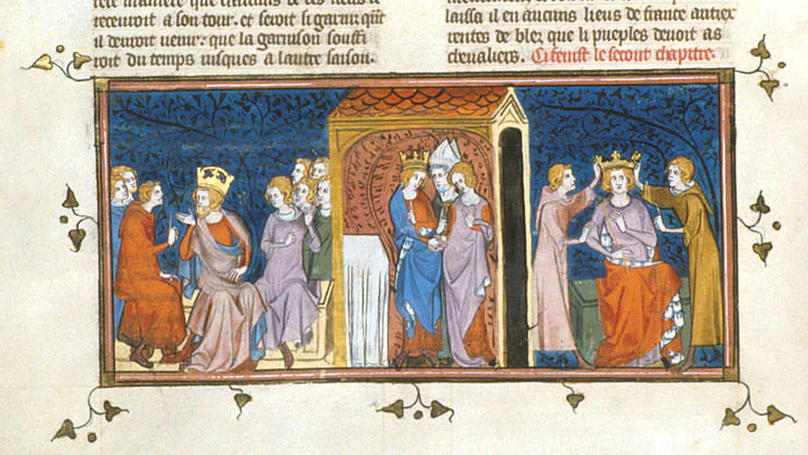 receuoit a son tour. et seoit si garni qͥt
il deuroit uenir. que la garnison souffi
roit du temps iusques a lautre saison.
laissa il en aucuns lieus de france
rentes de blez que li pueples deuoit as
cheualiers. Ci fenist le secont chapitre.